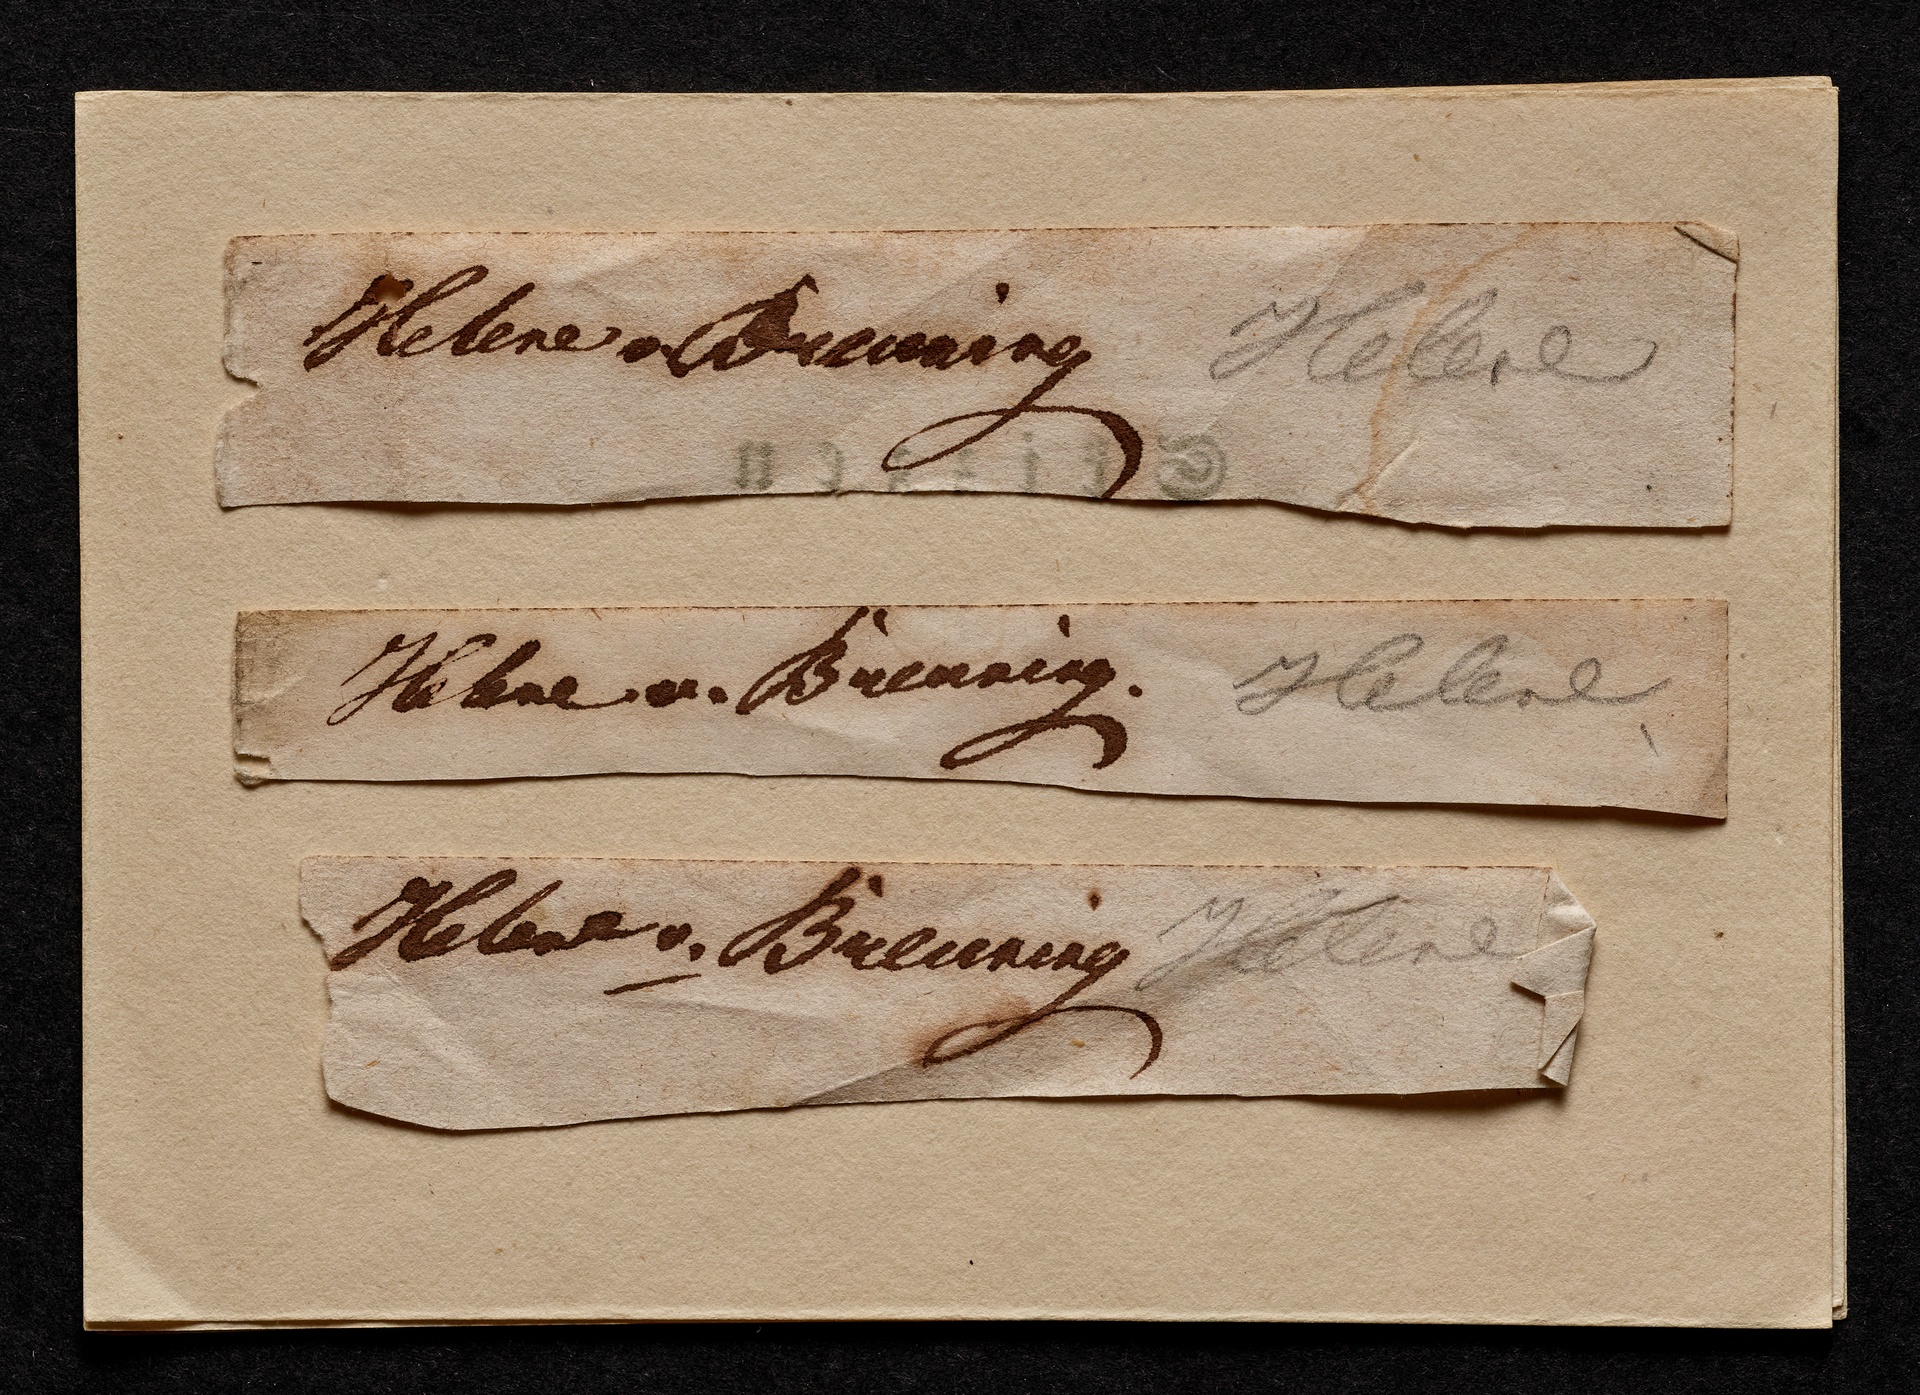 Helene v. Breuning Helene
Helene v. Breuning. Helene
Helene v. Breuning Helene